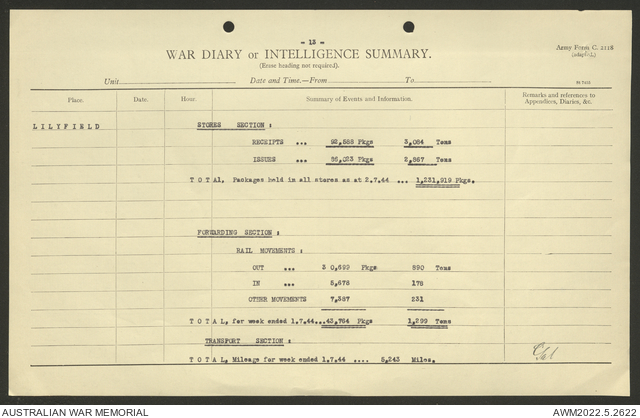 - 13 -
WAR DIARY or INTELLIGENCE SUMMARY.
(Erase heading not required).
Army Form C. 2118
(adapted.)
Unit
Date and Time.—From
To
Place.
Date.
Hour.
Summary of Events and Information.
Remarks and references to
Appendices, Diaries, &c.
LILYFIELD
STORES SECTION :
RECEIPTS ... 92,588 Pkgs 3,084 Tons
ISSUES ... 86,023 Pkgs 2,867 Tons
TOTAL, Packages held in all stores as at 2.7.44 ... 1,231,919 Pkgs.
FORWARDING SECTION :
RAIL MOVEMENTS :
OUT ... 30,699 Pkgs 890 Tons
IN ... 5,678 178
OTHER MOVEMENTS 7,387 231
TOTAL, for week ended 1.7.44...43,764 Pkgs 1,299 Tons
TRANSPORT SECTION :
TOTAL, Mileage for week ended 1.7.44 .... 5,243 Miles.
AUSTRALIAN WAR MEMORIAL
AWM2022.5.2622